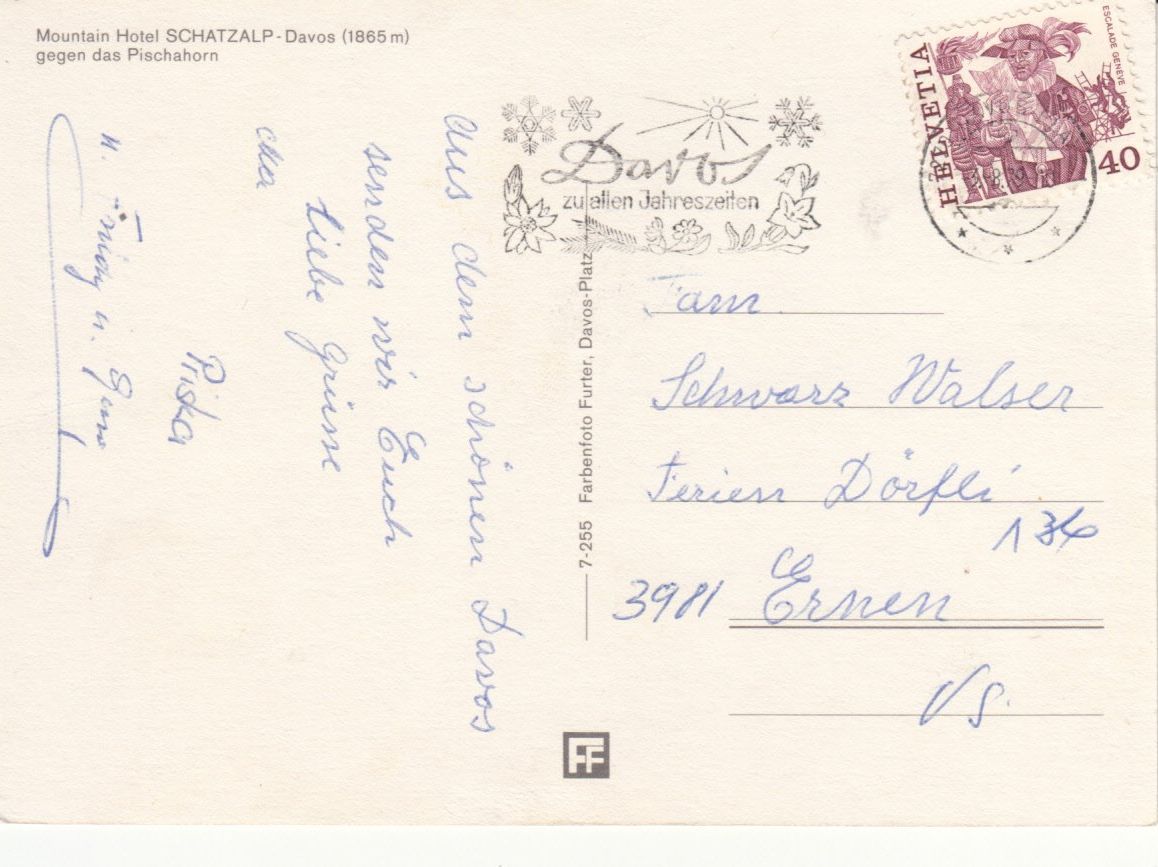 Mountain Hotel SCHATZALP-Davos (1865 m)
gegen das Pischahorn
Davos
zu allen Jahreszeiten
HELVETIA
ESCALADE GENÈVE
40
Aus dem schönen Davos
senden wir Euch
liebe Grüsse
Priska
u.
u.
7-255 Farbenfoto Furter, Davos-Platz
Fam.
Schwarz Walser
Ferien Dörfli
134
3981 Ernen
Vs.
FF